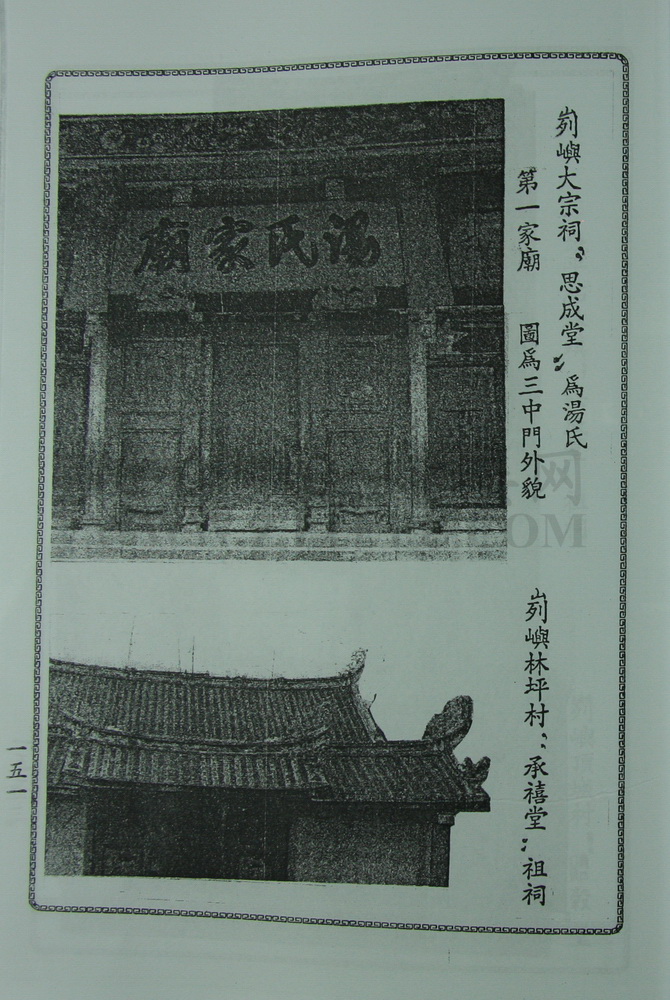 峛嶼大宗祠〝思成堂〞為湯氏
第一家廟　圖為三中門外貌
湯氏家廟
峛嶼林坪村〝承禧堂〞祖祠
一五一